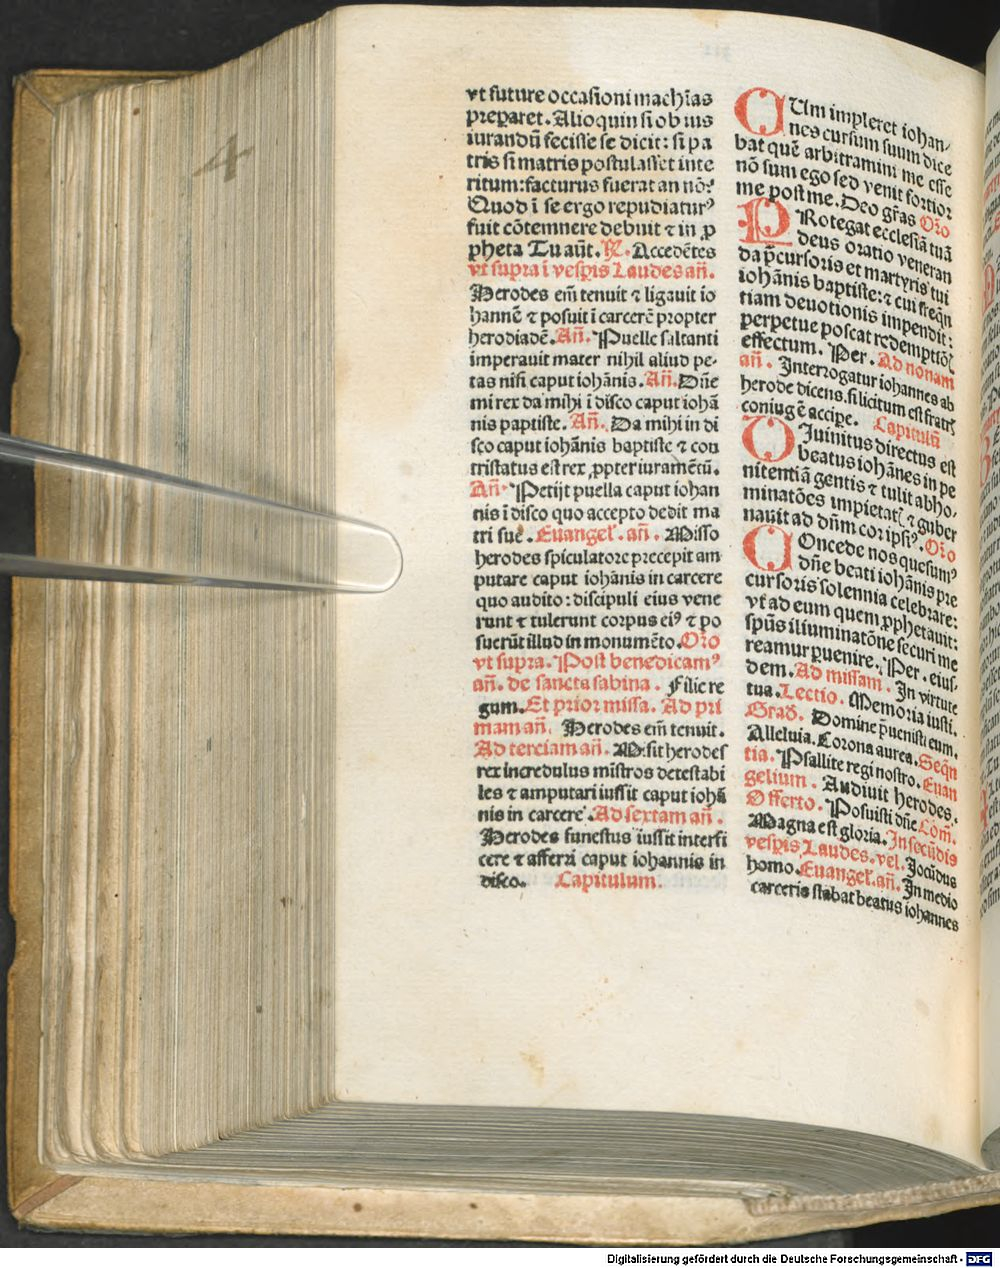 4
vt future occasioni machīas
preparet. Alioquin si ob ius
iurandū fecisse se dicit: si pa
tris si matris postulasset inte
ritum: facturus fuerat an nō?
Quod ī se ergo repudiatur⁹
fuit cōtemnere debuit ⁊ in ꝓ
pheta Tu aūt. ℟. Accedētes
vt supra ī vesp̄is Laudes añ.
Herodes em̄ tenuit ⁊ ligauit io
hannē ⁊ posuit ī carcerē propter
herodiadē. Añ. Puelle saltanti
imperauit mater nihil aliud pe-
tas nisi caput iohānis. Añ. Dñe
mi rex da mihi ī disco caput iohā
nis paptiste. Añ. Da mihi in di
sco caput iohānis baptiste ⁊ con
tristatus est rex ꝓpter iuramētū.
Añ. Petijt puella caput iohan
nis ī disco quo accepto dedit ma
tri sue. Euangel'. añ. Misso
herodes spiculatore precepit am
putare caput iohānis in carcere
quo audito: discipuli eius vene
runt ⁊ tulerunt corpus ei⁹ ⁊ po
suerūt illud in monumēto. Oro
vt supra. Post benedicam⁹
añ. de sancta sabina. Filie re
gum. Et prior missa. Ad pri
mam añ. Herodes em̄ tenuit.
Ad terciam añ. Misit herodes
rex incredulus mīstros detestabi
les ⁊ amputari iussit caput iohā
nis in carcere. Ad sextam añ.
Herodes funestus iussit interfi
cere ⁊ afferri caput iohannis in
disco. Capitulum.
CUm impleret iohan-
nes cursum suum dice
bat quē arbitramini me esse
nō sum ego sed venit fortior
me post me. Deo grās Oro
PRotegat ecclesiā tuā
deus oratio veneran
da p̄cursoris et martyris tui
iohānis baptiste: ⁊ cui freqn̄
tiam deuotionis impendit:
perpetue poscat redemptiōis
effectum. Per. Ad nonam
añ. Interrogatur iohannes ab
herode dicens. si licitum est fratris
coniugē accipe. Capitulū
DIuinitus directus est
beatus iohānes in pe
nitentiā gentis ⁊ tulit abho-
minatōes impietatis ⁊ guber
nauit ad dn̄m cor ipsi⁹. Oro
COncede nos quesum⁹
dn̄e beati iohānis pre
cursoris solennia celebrare:
vt ad eum quem ꝓphetauit:
spūs illuminatōne securi me
reamur ꝑuenire. Per. eius-
dem. Ad missam. In virtute
tua. Lectio. Memoria iusti.
Grad'. Domine p̄uenisti eum.
Alleluia. Corona aurea. Seqn̄
tia. Psallite regi nostro. Euan
gelium. Audiuit herodes.
Offerto. Posuisti dn̄e Com̄.
Magna est gloria. In secūdis
vesp̄is Laudes. vel. Jocūdus
homo. Euangel'. añ. In medio
carceris stabat beatus iohannes
Digitalisierung gefördert durch die Deutsche Forschungsgemeinschaft - DFG